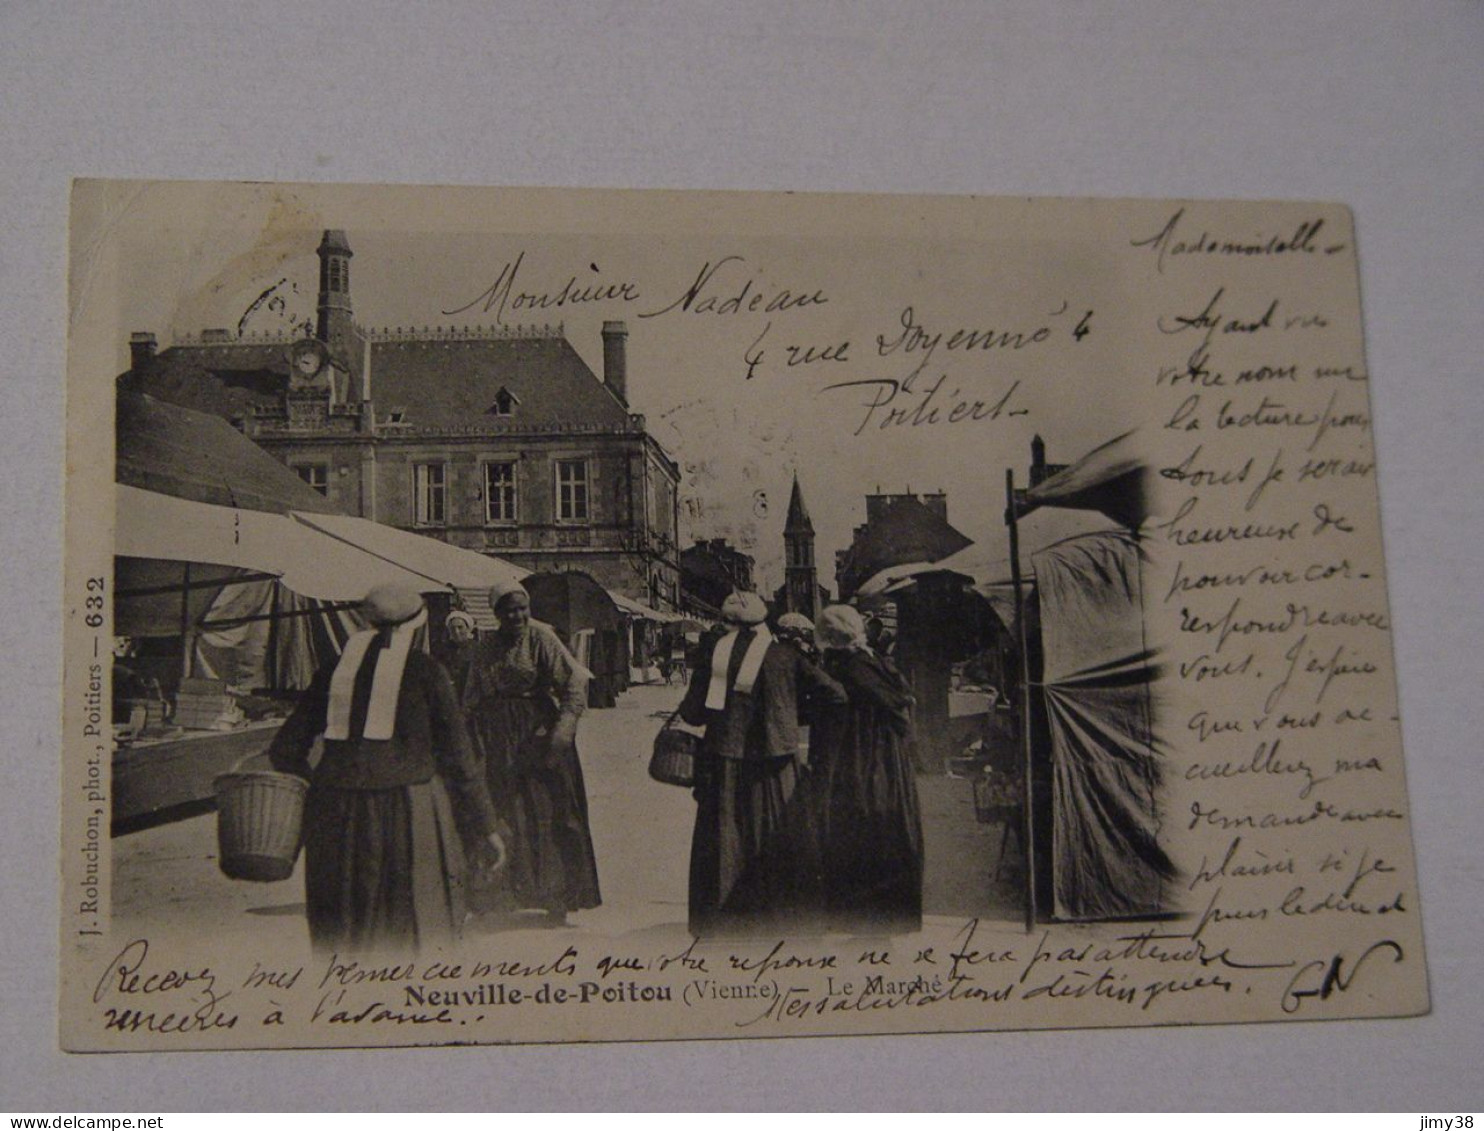 Monsieur Nadeau
4 rue Doyenné 4
Poitiers
Mademoiselle
Ayant vu
votre nom sur
la lecture pour
tous je serais
heureuse de
pouvoir cor-
respondre avec
vous. J'espère
que vous ac-
cueillerez ma
demande avec
plaisir si je
puis
Recevez mes remerciements que votre réponse ne se fera pas attendre
à l'avance..
Mes salutations distinguées.
J. Robuchon, phot., Poitiers — 632
Neuville-de-Poitou (Vienne) — Le Marché
jimy38